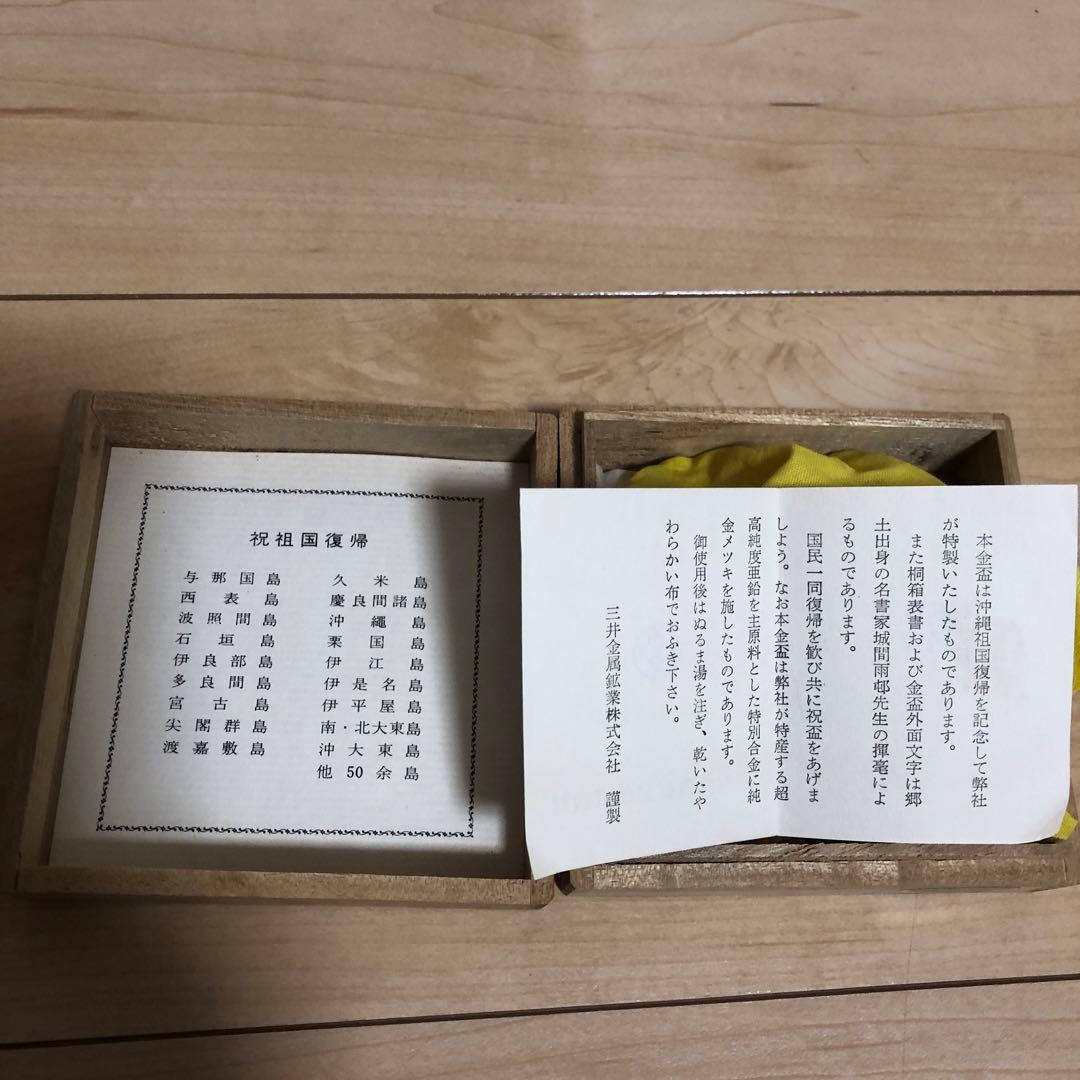 祝祖国復帰
与那国島　久米島
西表島　慶良間諸島
波照間島　沖縄島
石垣島　栗国島
伊良部島　伊江島
多良間島　伊是名島
宮古島　伊平屋島
尖閣群島　南・北大東島
渡嘉敷島　沖大東島
他50余島
本金盃は沖縄祖国復帰を記念して弊社
が特製いたしたものであります。
また桐箱表書および金盃外面文字は郷
土出身の名書家城間雨邨先生の揮毫によ
るものであります。
国民一同復帰を歓び共に祝盃をあげま
しよう。なお本金盃は弊社が特産する超
高純度亜鉛を主原料とした特別合金に純
金メツキを施したものであります。
御使用後はぬるま湯を注ぎ、乾いたや
わらかい布でおふき下さい。
三井金属鉱業株式会社　謹製